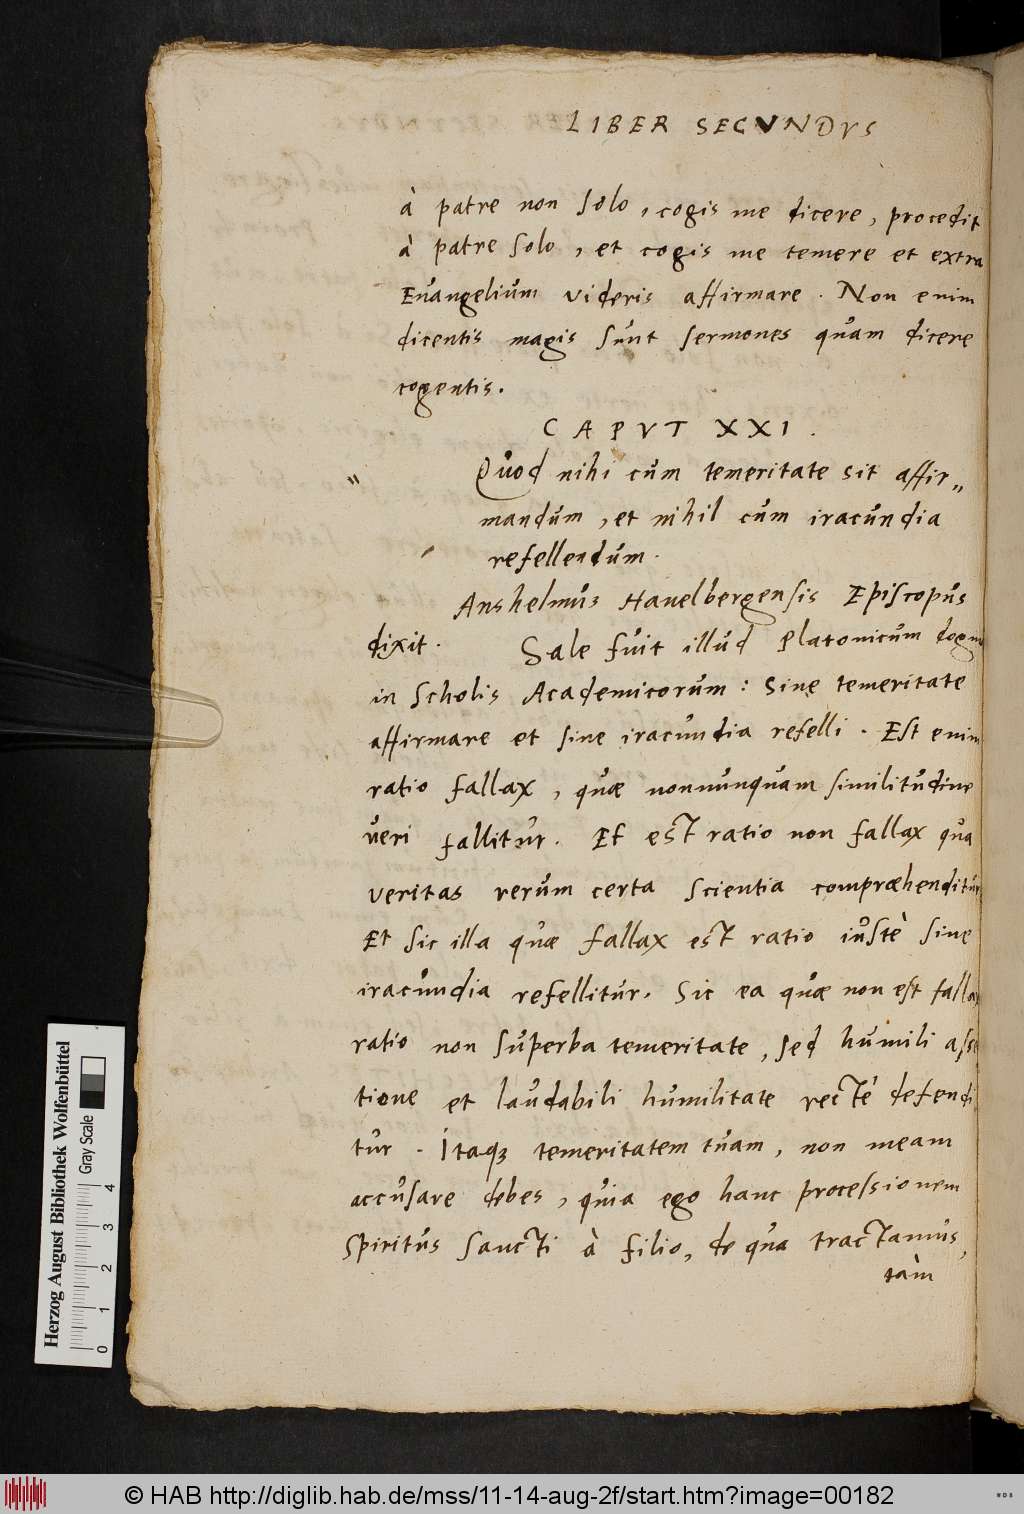 LIBER SECVNDVS
à patre non solo, cogis me dicere, procedit
à patre solo, et cogis me temere et extra
Euangelium videris affirmare. Non enim
dicentis magis sunt sermones quam dicere
cogentis.
CAPVT XXI.
Quod nihi cum temeritate sit affir„
mandum, et nihil cum iracundia
refellendum.
Anshelmus Hauelbergensis Episcopus
dixit. Sale fuit illud Platonicum dogma
in Scholis Academicorum: Sine temeritate
affirmare et sine iracundia refelli. Est enim
ratio fallax, quæ nonnunquam similitudine
veri fallitur. Et est ratio non fallax qua
veritas rerum certa scientia compræhenditur
Et sic illa quæ fallax est ratio iustè sine
iracundia refellitur. Sic ea quæ non est fallax
ratio non superba temeritate, sed humili asse
tione et laudabili humilitate rectè defendi
tur. Itaqꝫ temeritatem tuam, non meam
accusare debes, quia ego hanc processionem
Spiritus Sancti à filio, de qua tractamus,
tàm
Herzog August Bibliothek Wolfenbüttel
Gray Scale
0 1 2 3 4
© HAB http://diglib.hab.de/mss/11-14-aug-2f/start.htm?image=00182